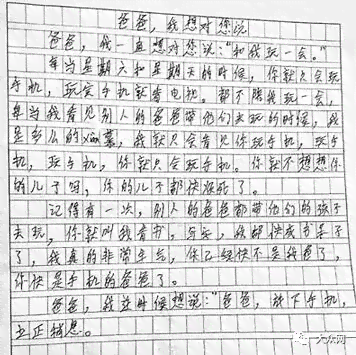 爸爸,我想对您说
爸爸,我一直想对您说:“和我玩一会。”
每当星期六和星期天的时候,你就只会玩
手机,玩完手机就看电视。都不陪我玩一会,
每当我看见别人的爸爸带他们去玩的时候,我
是多么的xian慕,我就只会看见你玩手机,玩手
机,玩手机,你就只会玩手机。你就不想想你
的儿子吗,你的儿子都快 死了。
记得有一次,别人的爸爸都带他们的孩子
去玩,你就叫我看书、写字,我都快成书呆子
了,我真的非常生气,你已经快不是我爸了,
你快是手机的爸爸了。
爸爸,我这时候想说:“爸爸,放下手机,
立正稍息。
大众网